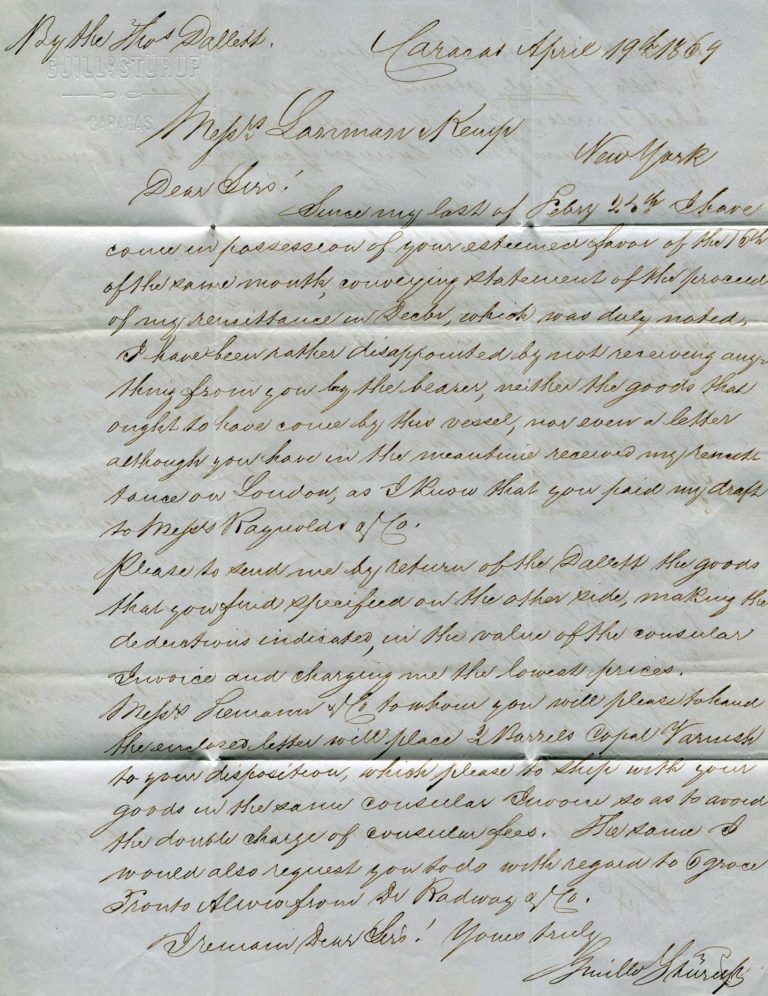 By the Thos Dallett.
Caracas April 19th 1869
GUILLO STÜRUP
CARACAS
Messrs Lanman & Kemp
New York
Dear Sirs!
Since my last of Febry 25th I have
come in possession of your esteemed favor of the 16th
of the same month, conveying statement of the proceed
of my remittance in Decbr, which was duly noted.
I have been rather disappointed by not receiving any-
thing from you by the bearer, neither the goods that
ought to have come by this vessel, nor even a letter
although you have in the meantime received my remit-
tance on London, as I know that you paid my draft
to Messrs Raynolds & Co.
Please to send me by return of the Dallett the goods
that you find specified on the other side, making the
deductions indicated, in the value of the consular
Invoice and charging me the lowest prices.
Messrs Siemann & Co to whom you will please to hand
the enclosed letter will place 2 Barrels Copal Varnish
to your disposition, which please to ship with your
goods in the same consular Invoice so as to avoid
the double charge of consular fees. The same I
would also request you to do with regard to 6 groce
Pronto Alivio from Dr Radway & Co.
I remain Dear Sirs! Yours truly
Guillo Stürup